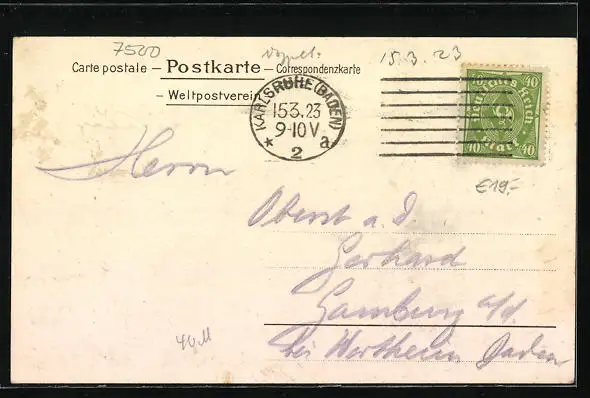 7500
15.3.23
Carte postale – Postkarte – Correspondenzkarte
– Weltpostverein
KARLSRUHE (BADEN)
15.3.23
9-10 V
* 2 a
40 40
Deutsches Reich
Mark
40 40
€19,-
Herrn
Oberst a. D.
Gerhard
Gamburg a/d.
bei Wertheim Baden
40 M